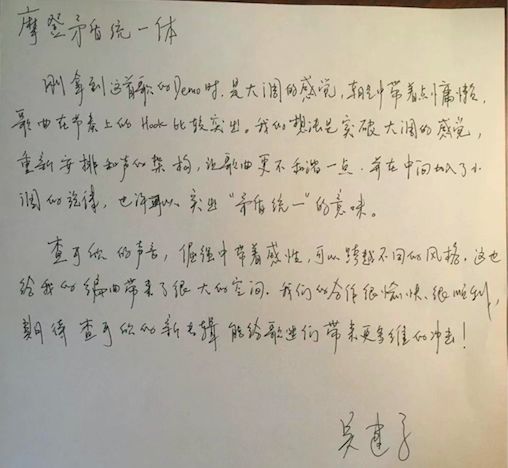 摩登矛盾统一体
刚拿到这首歌的Demo时,是大调的感觉,朝气中带着点慵懒,
歌曲在节奏上的Hook比较突出。我的想法是突破大调的感觉,
重新安排和声的架构,让歌曲更不和谐一点.并在中间加入了小
调的旋律,也许可以突出“矛盾统一”的意味。
查可欣的声音,倔强中带着感性,可以跨越不同的风格.这也
给我的编曲带来了很大的空间.我们的合作很愉快、很顺利,
期待查可欣的新专辑能给歌迷们带来更多维的冲击!
吴建